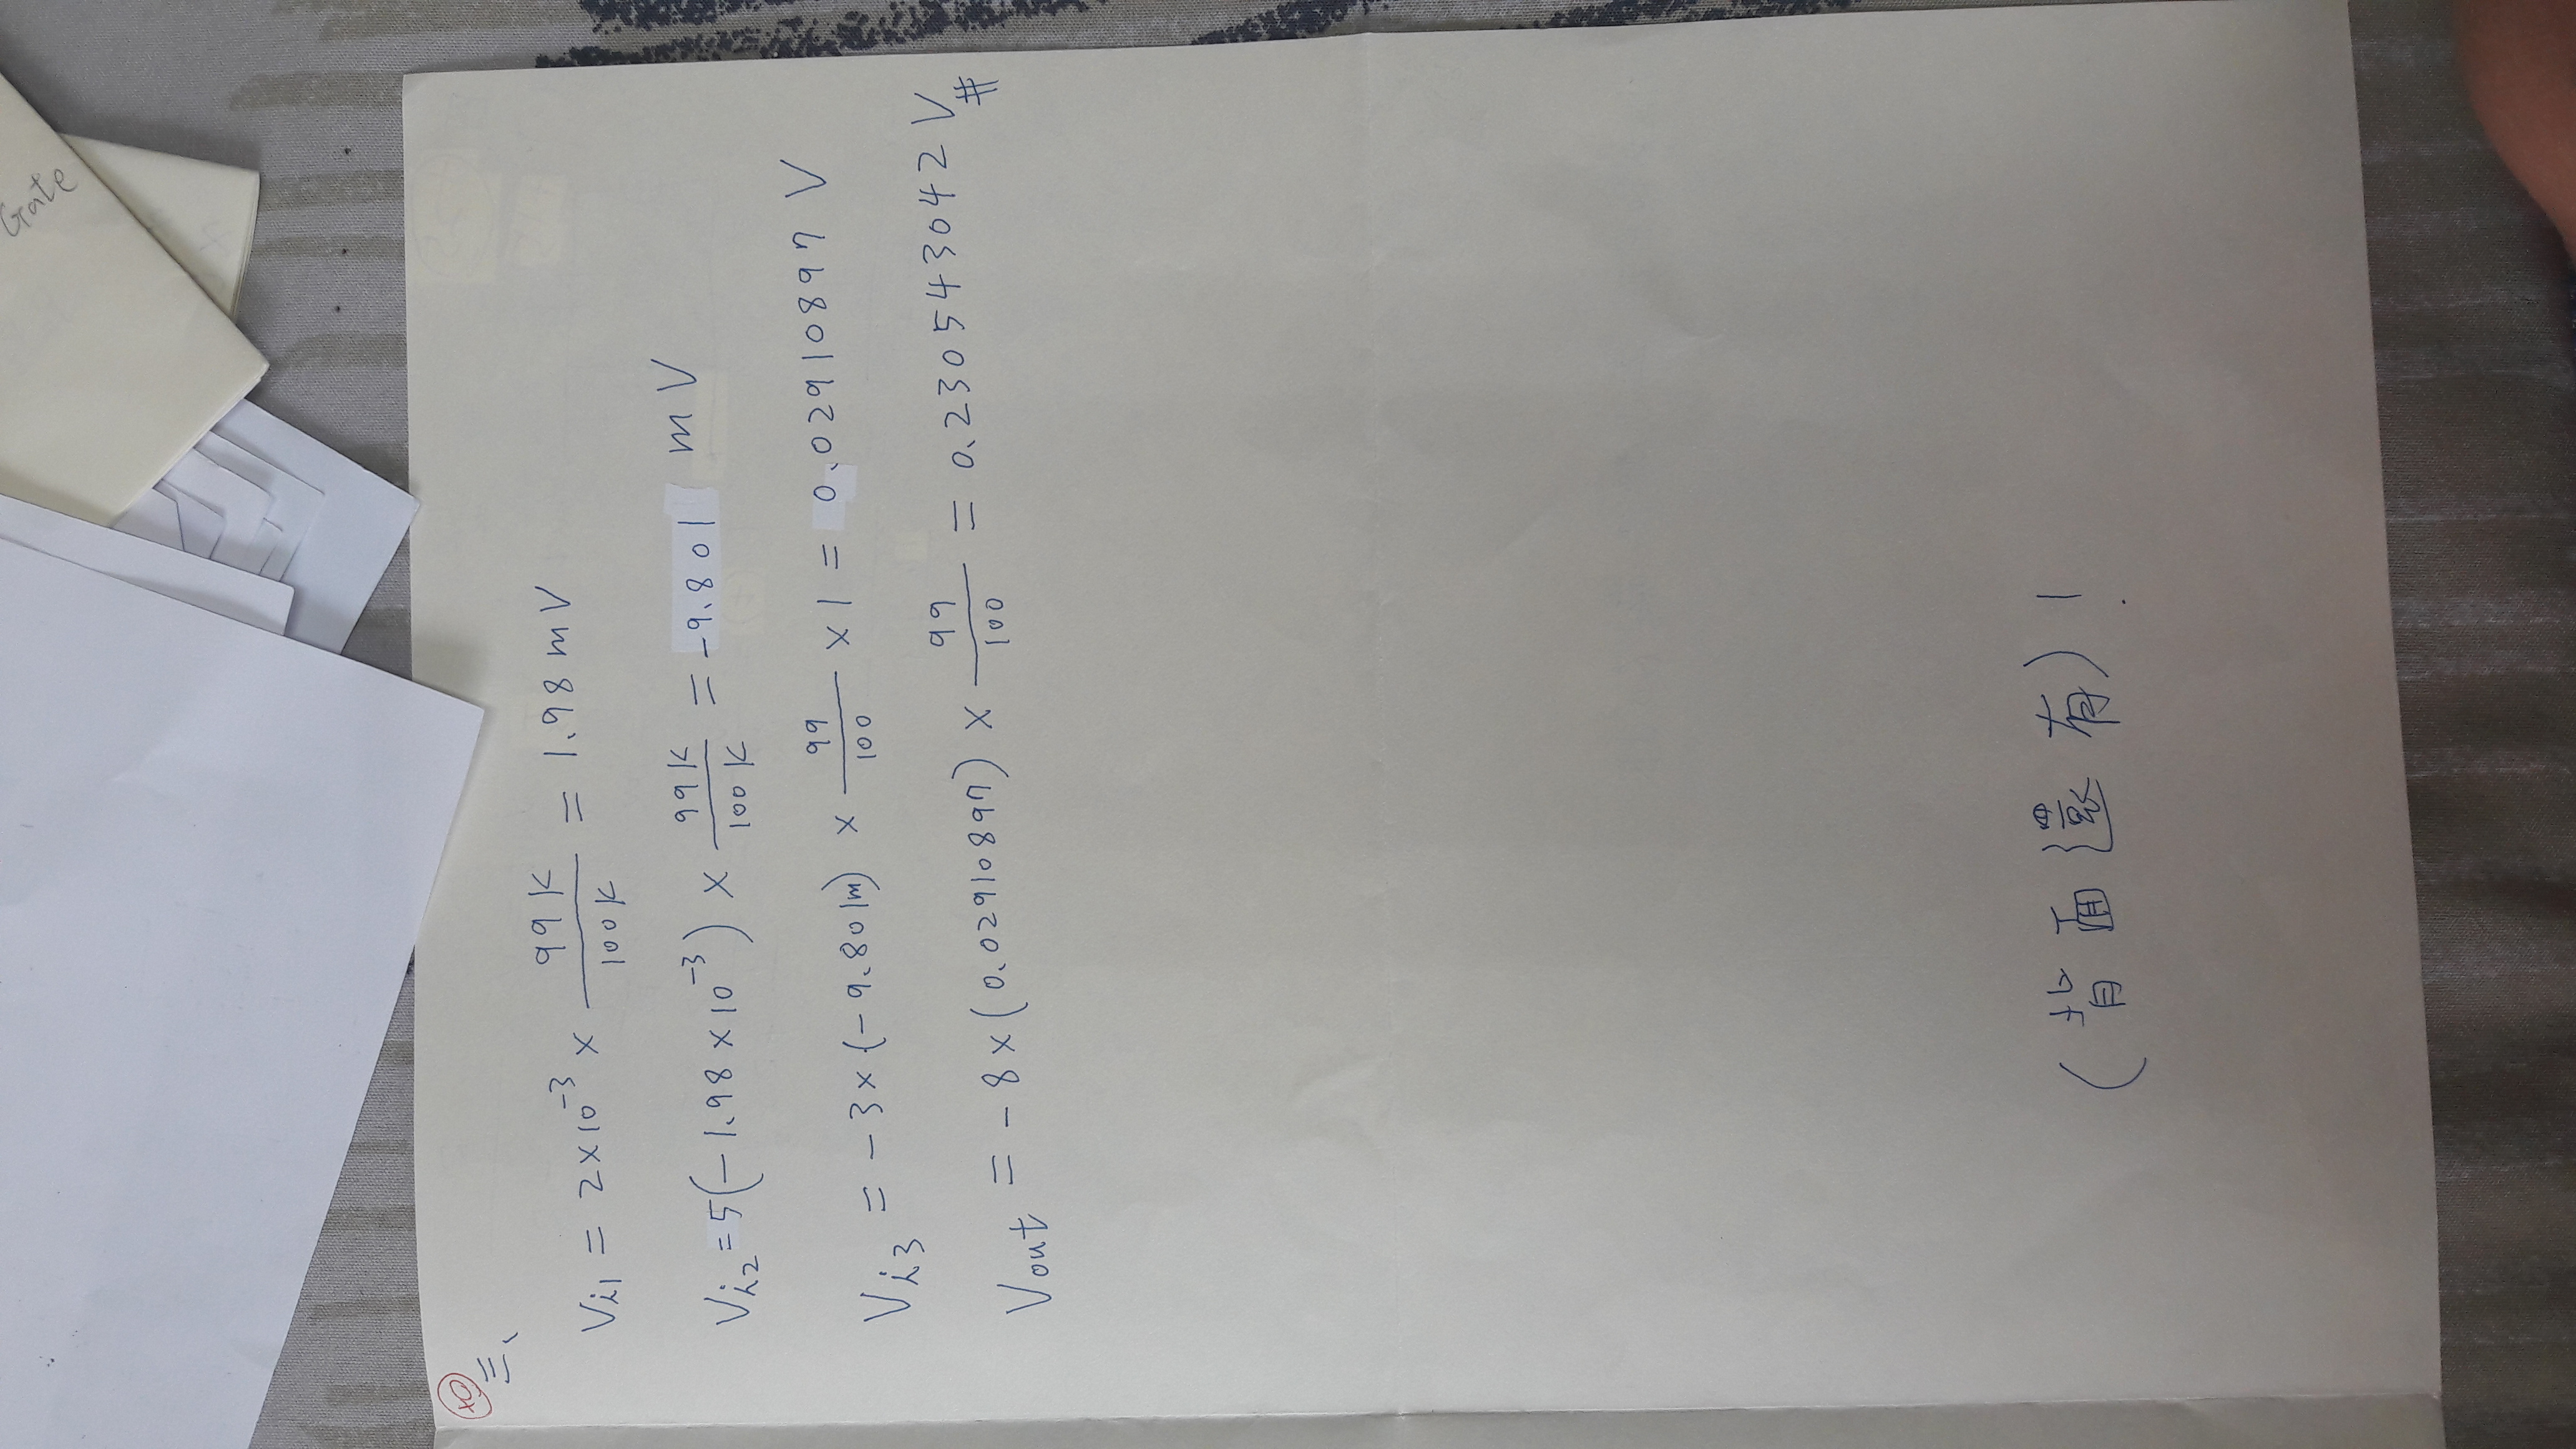 Gate
+0
三、
Vi1 = 2×10^-3 × 99K/100K = 1.98 mV
Vi2 = 5(-1.98×10^-3) × 99K/100K = -9.801 mV
Vi3 = -3×(-9.801m) × 99/100 ×1 = 0.02910897 V
Vout = -8×(0.02910897) × 99/100 = 0.230543042 V#
(背面還有)!